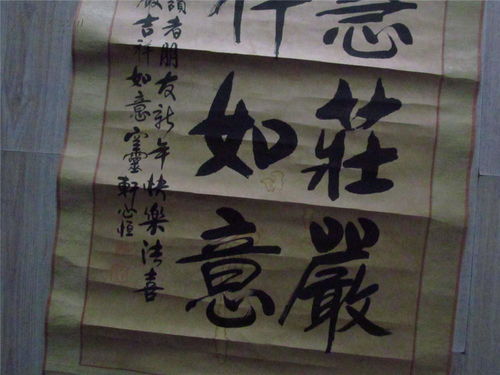 慧莊嚴
祥如意
讀者朋友新年快樂法喜
嚴吉祥如意空靈軒心恒